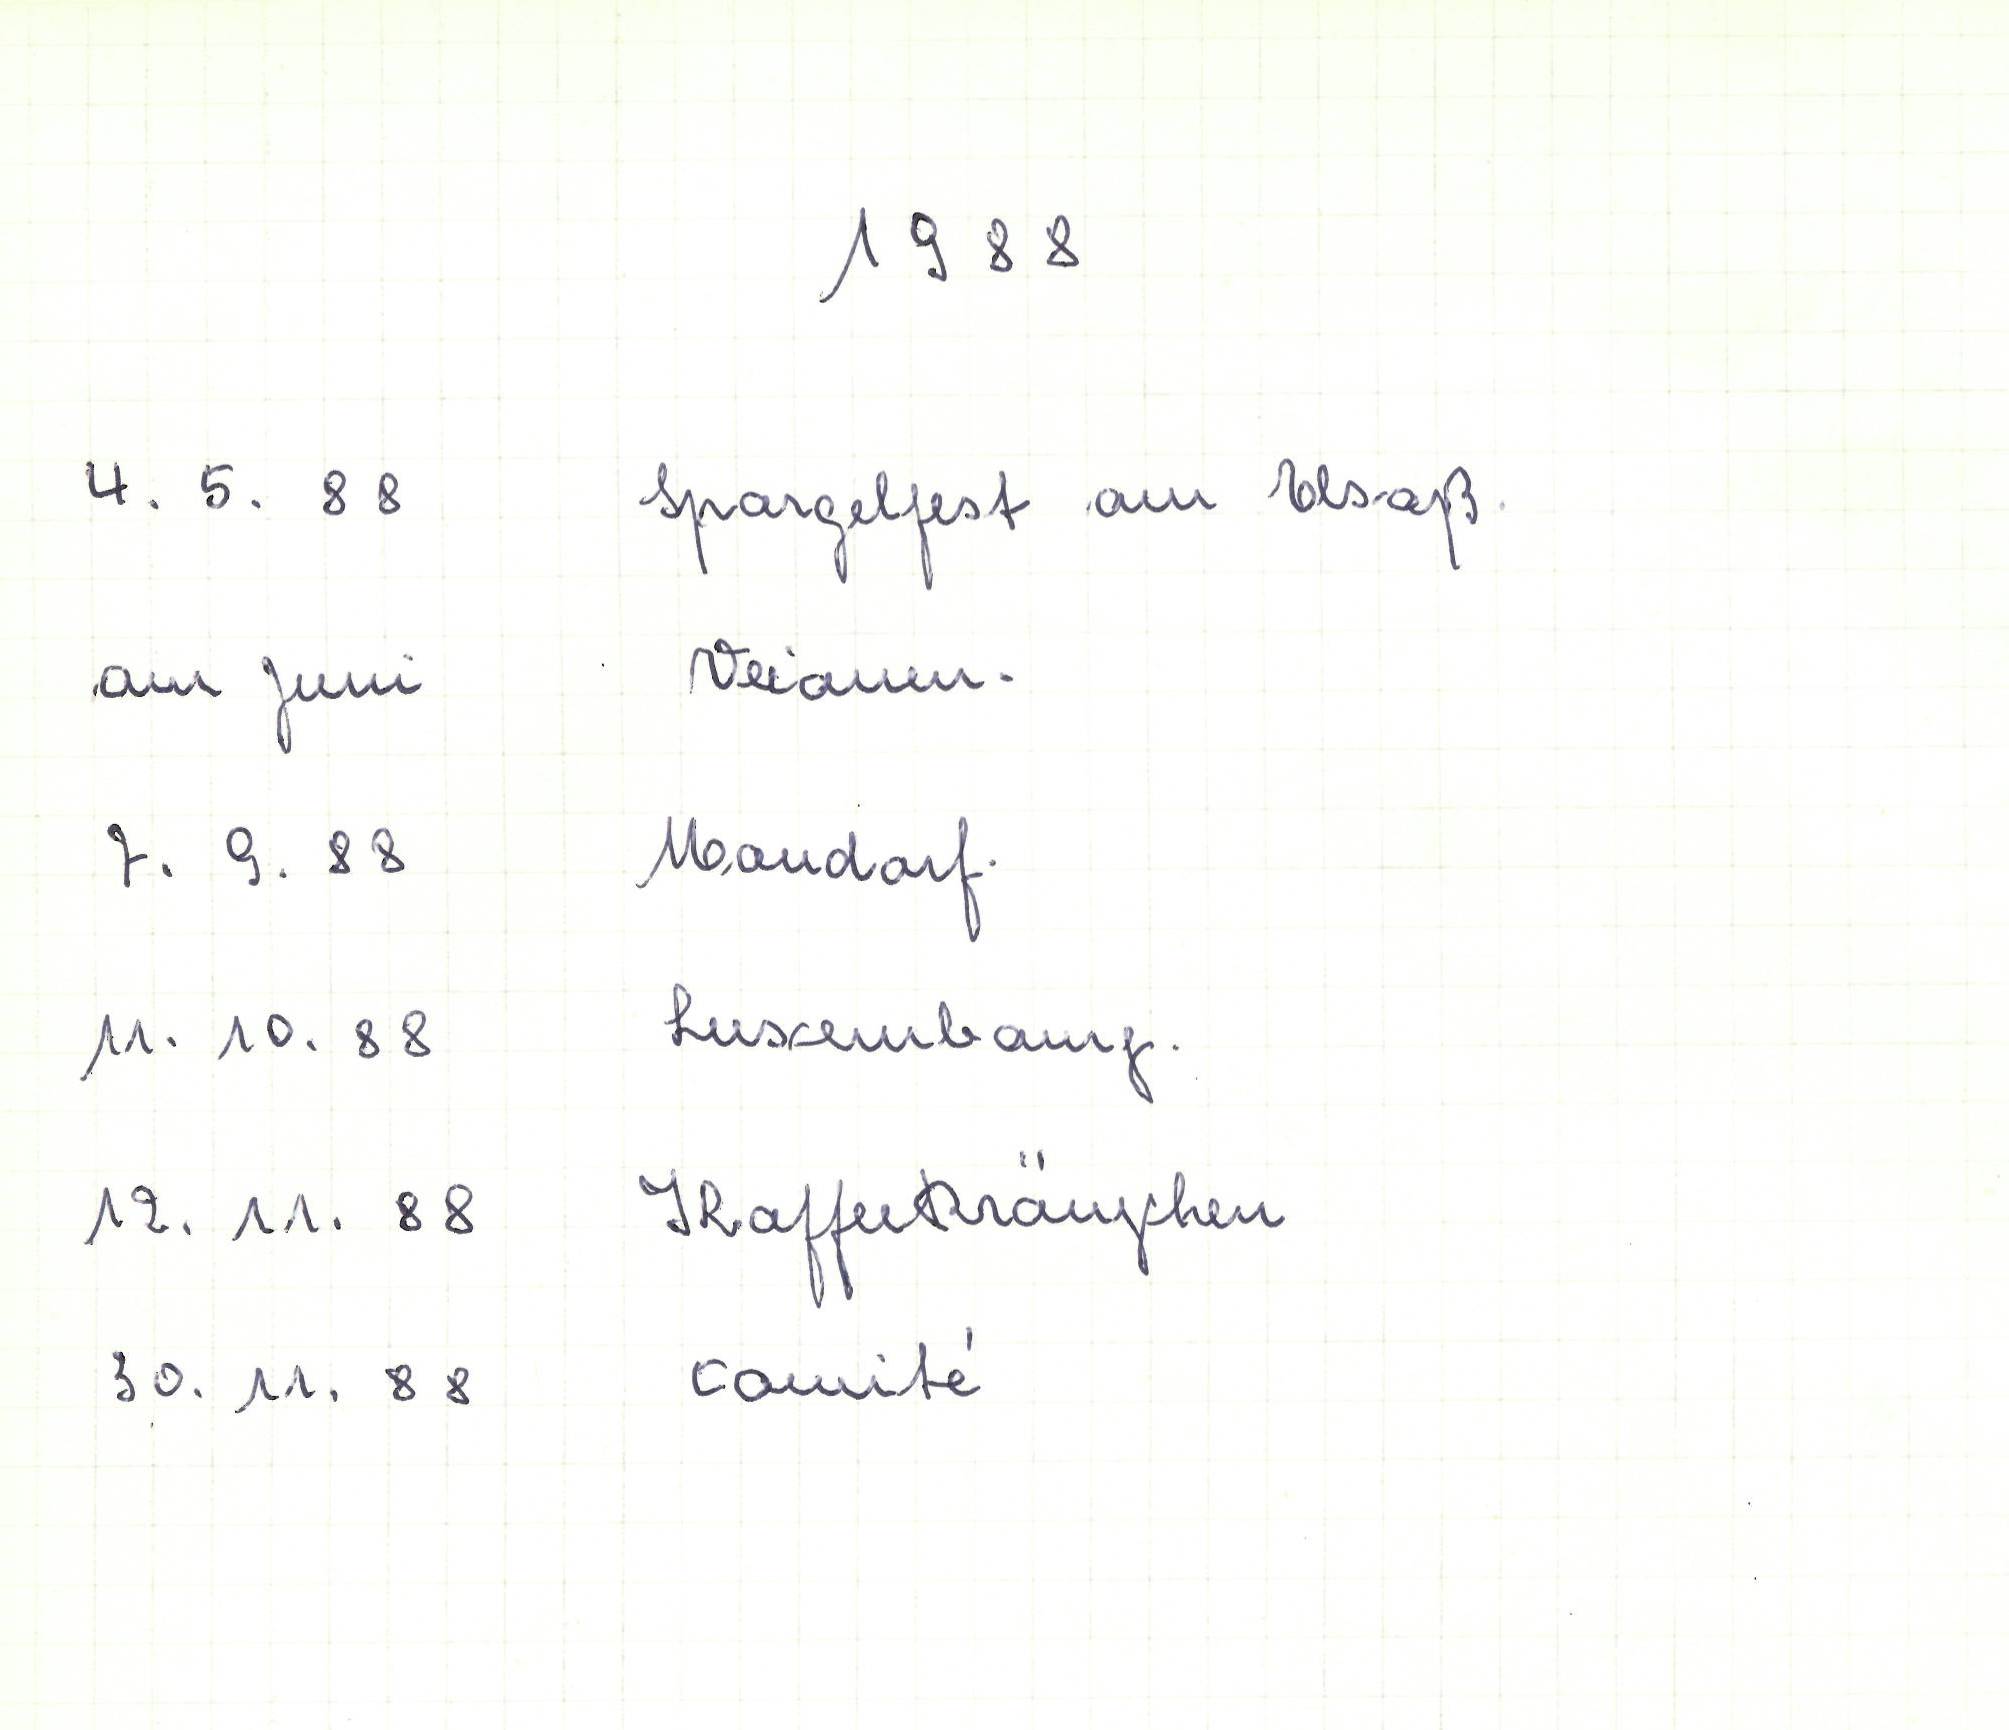 1988
4. 5. 88 Spargelfest am Elsaß.
am Juni Veianen.
7. 9. 88 Mondorf.
11. 10. 88 Luxembourg.
12. 11. 88 Kaffeekränzchen
30. 11. 88 Comité